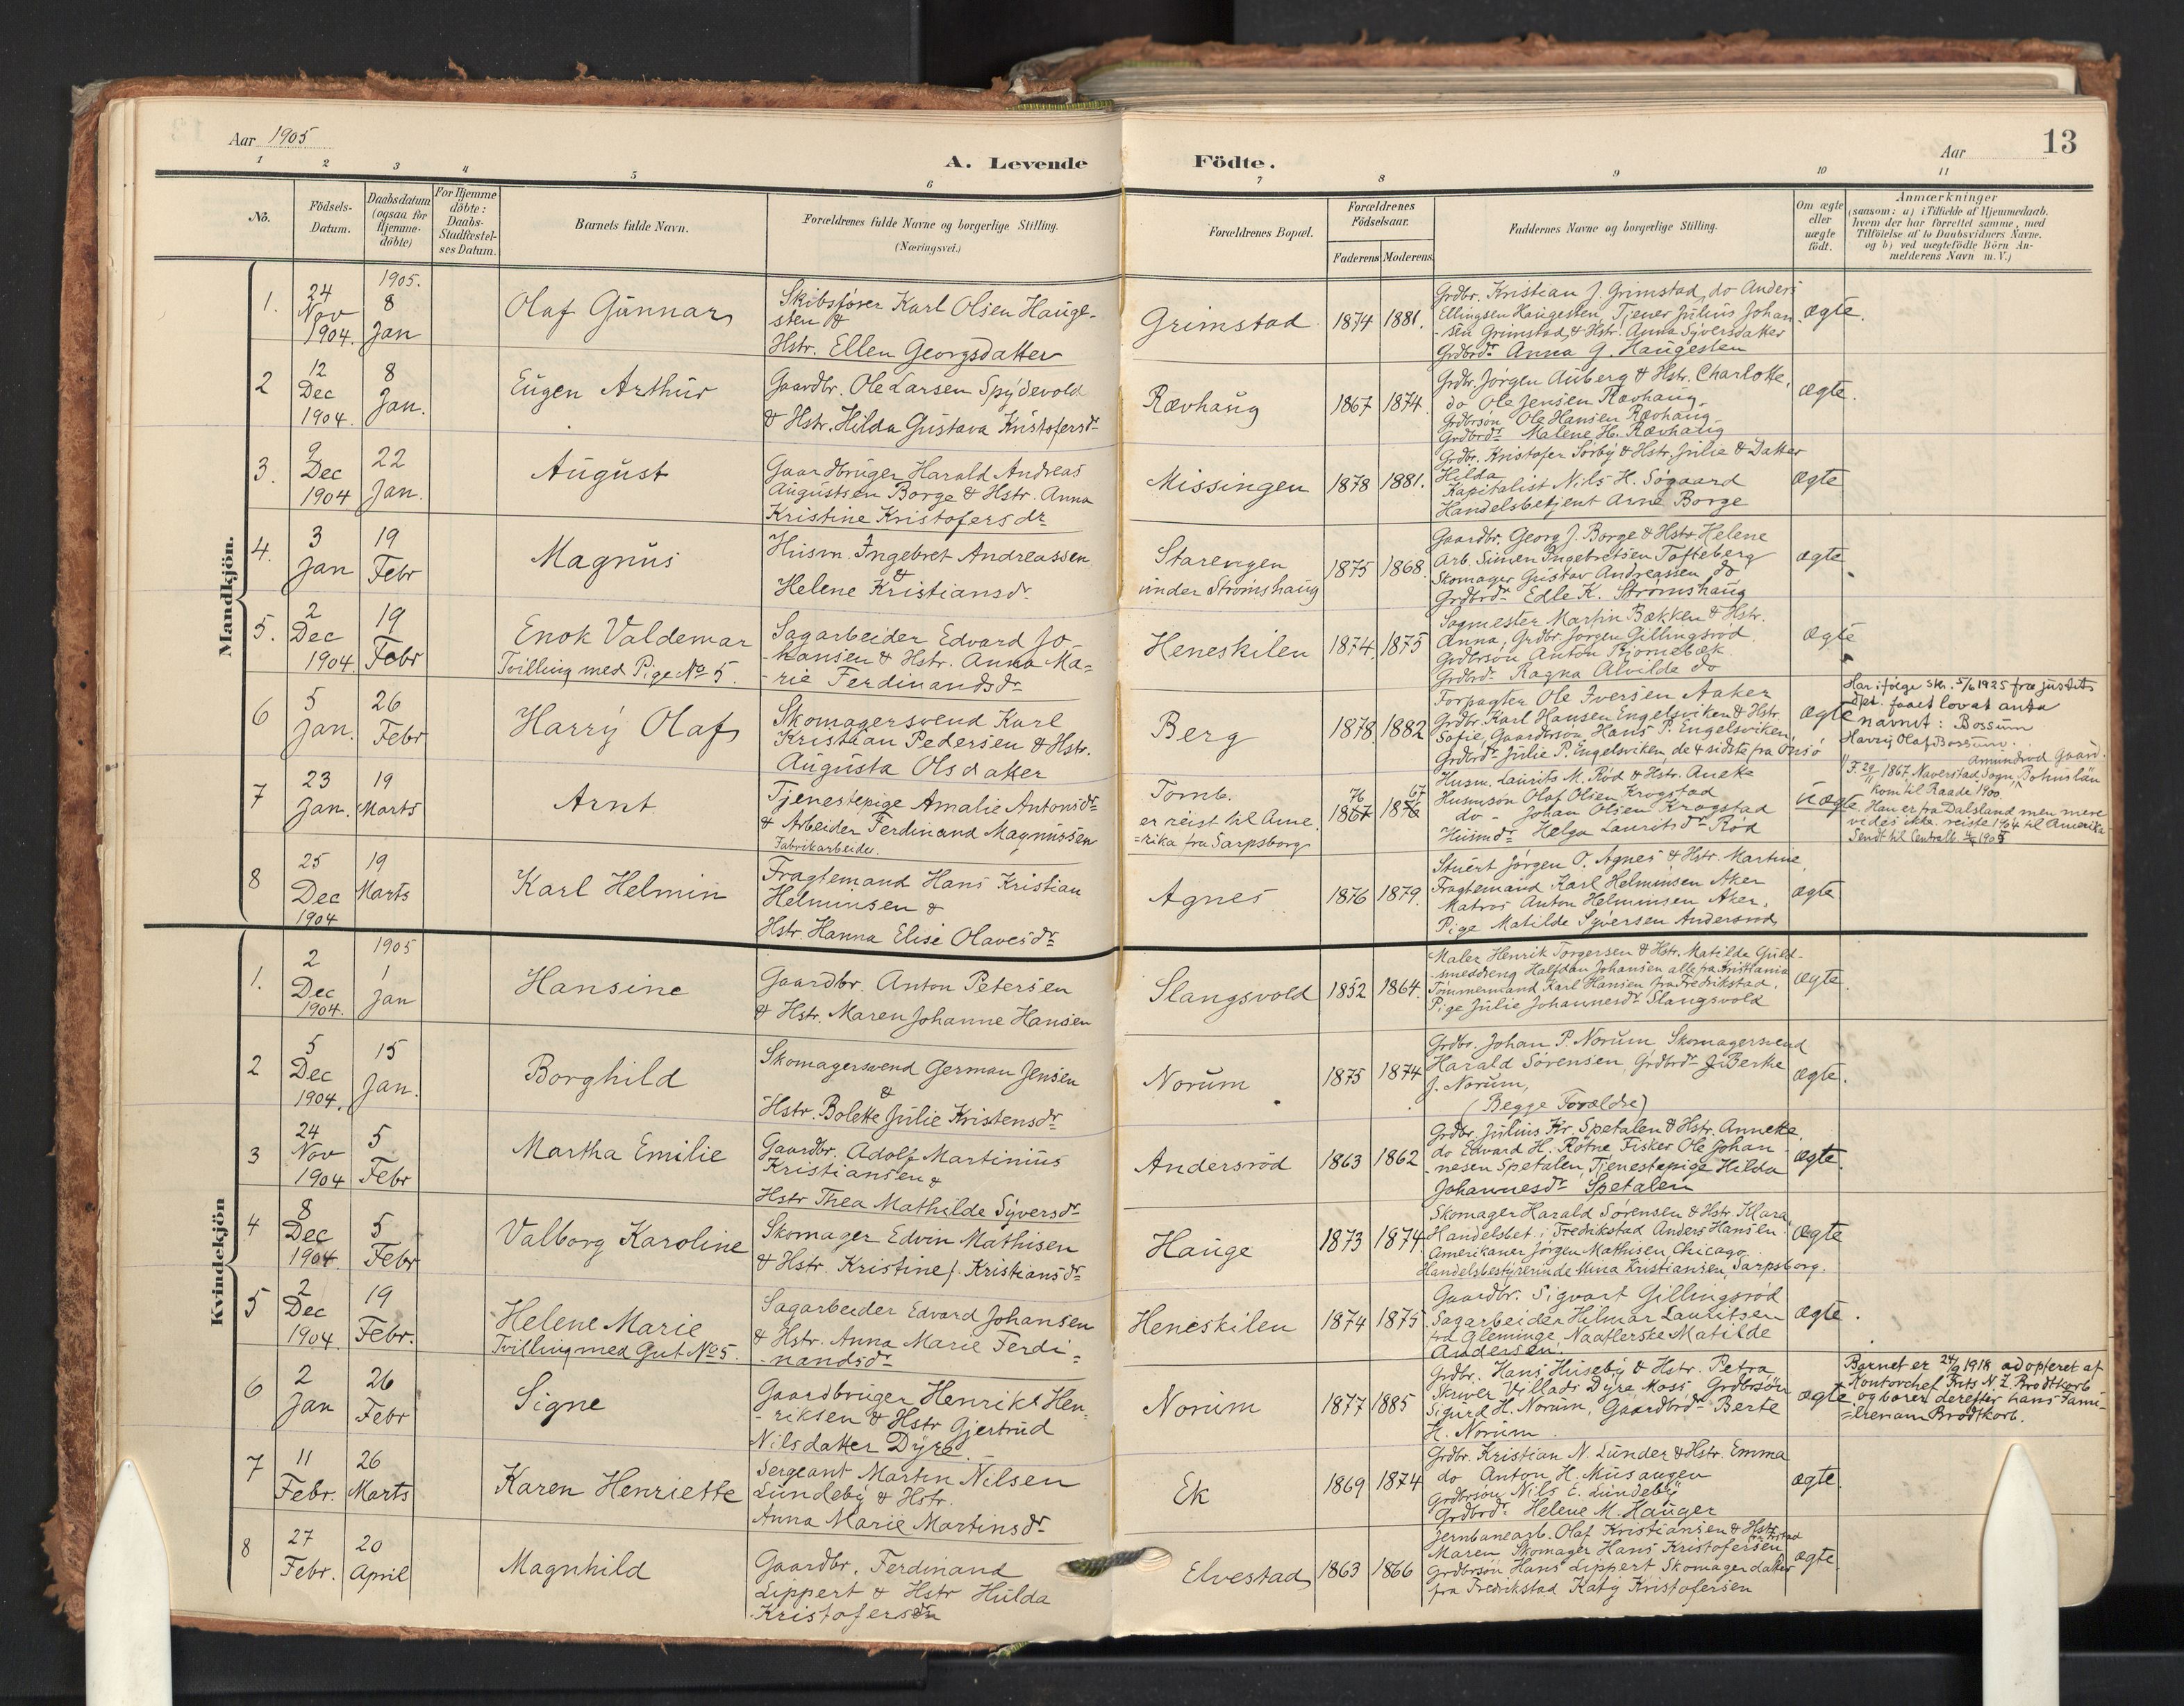 Aar 1905
A. Levende Födte.
Aar
13
1 2 3 4 5 6 7 8 9 10 11
No.
Födsels-Datum.
Daabsdatum (ogsaa for Hjemme-döbte)
For Hjemme döbte: Daabs-Stadfæstel-ses Datum.
Barnets fulde Navn.
Forældrenes fulde Navne og borgerlige Stilling.
(Næringsvei.)
Forældrenes Bopæl.
Forældrenes Födselsaar.
Faderens Moderens
Faddernes Navne og borgerlige Stilling.
Om ægte eller uægte födt.
Anmærkninger
(saasom: a) i Tilfælde af Hjemmedaab,
hvem der har forrettet samme, med
Tilföielse af to Daabsvidners Navne.
og b) ved uægtefödte Börn An-
melderens Navn m.V.)
Mandkjön.
1. 24 Nov 1904. 1905. 8 Jan
Olaf Gunnar
Skibsfører Karl Olsen Hauge-
sten &
Hstr. Ellen Georgsdatter
Grimstad 1874 1881.
Grdbr. Kristian J. Grimstad, do Anders
Ellingsen Haugesten, Tjener Julius Johan-
sen Grimstad, & Hstr. Anna Syversdatter
Grdbrdr. Anna G. Haugesten
ægte.
2 12 Dec 1904. 8 Jan.
Eugen Arthur
Gaardbr. Ole Larsen Spydevold
& Hstr. Hilda Gustava Kristofersdr
Rævhaug 1867 1874.
Grdbr. Jørgen Auberg & Hstr. Charlotte,
do Ole Jensen Rævhaug.
Grdbrsøn Ole Hansen Rævhaug
Grdbrdr. Malene H. Rævhaug
ægte.
3. 9 Dec 1904 22 Jan.
August
Gaardbruger Harald Andreas
Augustsen Borge & Hstr. Anna
Kristine Kristofersdr
Missingen 1878 1881.
Grdbr. Kristofer Sørby & Hstr. Julie & Datter
Hilda
Kapitalist Nils H. Søgaard
Handelsbetjent Arne Borge
ægte
4. 3 Jan 19 Febr
Magnus
Husm. Ingebret Andreassen
&
Helene Kristiansdr.
Starengen
under Strømshaug
1875 1868
Gaardbr. Georg J. Borge & Hstr. Helene
Arb. Simen Ingebretsen Tofteberg
Skomager Gustav Andreassen do
Grdbrdr. Edle K. Strømshaug
ægte
5. 2 Dec 1904. 19 Febr
Enok Valdemar
Tvilling med Pige No 5.
Sagarbeider Edvard Jo-
hansen & Hstr. Anna Ma-
rie Ferdinandsdr
Heneskilen 1874. 1875
Sagmester Martin Bækken & Hstr.
Anna, Grdbr. Jørgen Gillingsrød.
Grdbrsøn Anton Bjørnebæk
Grdbrdr. Ragna Alvilde do
ægte
6 5 Jan. 26 Febr
Harry Olaf
Skomagersvend Karl
Kristian Pedersen & Hstr.
Augusta Olsdatter
Berg 1878. 1882
Forpagter Ole Iversen Aaker
Grdbr. Karl Hansen Engelsviken & Hstr.
Sofie, Gaardbrsøn Hans P. Engelsviken,
Grdbrdr. Julie P. Engelsviken de 4 sidste fra Onsø
ægte
Har ifølge skr. 5/6 1925 fra Justits
dpt. faaet lov at anta
navnet: Bossum
Harry Olaf Bossum.
7 23 Jan. 19 Marts
Arnt
Tjenestepige Amalie Antonsdr
& Arbeider Ferdinand Magnussen
Fabrikarbeider.
Tomb.
er reist til Ame-
rika fra Sarpsborg
76 67
1867 1876
Husm. Laurits M. Rød & Hstr. Anette
Husmsøn Olaf Olsen Krogstad
do - Johan Olsen Krogstad
Husmdr. Helga Lauritsdr Rød
uægte
Amundrød Gaard.
F. 29/11 1867. Naverstad Sogn, Bohuslän
kom til Raade 1900
Han er fra Dalsland men mere
vedes ikke. reiste 1904 til Amerika
Sendt til Centralb. 1905
8 25 Dec 1904 19 Marts
Karl Helmin
Fragtemand Hans Kristian
Helminsen &
Hstr. Hanna Elise Olavesdr
Agnes 1876 1879.
Stuert Jørgen O. Agnes & Hstr. Martine
Fragtemand Karl Helminsen Aker
Matros Anton Helminsen Aker,
Pige Matilde Syversen Andersrød
ægte
Kvindekjön
1. 2 Dec 1904. 1905 1 Jan
Hansine
Gaardbr. Anton Petersen
& Hstr. Maren Johanne Hansen
Slangsvold 1852 1864.
Maler Henrik Torgersen & Hstr. Matilde Guld-
smeddreng Halfdan Johansen alle fra Kristiania
Tømmermand Karl Hansen fra Fredrikstad,
Pige Julie Johannesdr. Slangsvold
ægte.
2 5 Dec 1904. 15 Jan.
Borghild
Skomagersvend German Jensen
&
Hstr. Bolette Julie Kristensdr
Norum 1875 1874
Grdbr. Johan P. Norum Skomagersvend
Harald Sørensen, Grdbrdr. Berthe
J. Norum,
(Begge Forældre)
ægte.
3 24 Nov 1904 5 Febr
Martha Emilie
Gaardbr. Adolf Martinius
Kristiansen &
Hstr Thea Mathilde Syversdr
Andersrød 1863 1862
Grdbr. Julius Kr. Spetalen & Hstr. Annette,
do Edvard H. Røtne Fisker Ole Johan-
nesen Spetalen, Tjenestepige Hilda
Johannesdr Spetalen
ægte.
4 8 Dec 1904. 5 Febr
Valborg Karoline
Skomager Edvin Mathisen
& Hstr. Kristine J. Kristiansdr
Hauge 1873 1874.
Skomager Harald Sørensen & Hstr. Klara
Handelsbet. i Fredrikstad Anders Hansen
Amerikaner Jørgen Mathisen, Chicago.
Handelsbestyrerinde Mina Kristiansen, Sarpsborg.
ægte
5 2 Dec 1904. 19 Febr.
Helene Marie
Tvilling med Gut No 5.
Sagarbeider Edvard Johansen
& Hstr. Anna Marie Ferdi-
nandsdr
Heneskilen 1874 1875
Gaardbr. Sigvart Gillingsrød
Sagarbeider Hilmar Lauritsen
fra Glemminge, Naatlerske Matilde
Andersen.
ægte.
6 2 Jan 26 Febr
Signe
Gaardbruger Henrik Hen-
riksen & Hstr Gjertrud
Nilsdatter Dyre.
Norum 1877 1885
Grdbr. Hans Huseby & Hstr. Petra,
Skriver Villads Dyre Moss, Grdbrsøn
Sigurd H. Norum, Gaardbrdr Berte
H. Norum.
ægte
Barnet er 24/9 1918 adopteret af
Kontorchef Frits N. Z. Brodtkorb
og bærer derefter hans Fami-
lienavn Brodtkorb.
7 11 Febr. 26 Marts
Karen Henriette
Sergeant Martin Nilsen
Lundeby & Hstr.
Anna Marie Martinsdr
Ek 1869 1874
Grdbr. Kristian N. Lunder & Hstr. Emma
do Anton H. Musangen
Grdbrsøn Nils E. Lundeby
Grdbrdr. Helene M. Hauger
ægte.
8 27 Febr. 20 April
Magnhild
Gaardbr. Ferdinand
Lippert & Hstr Hulda
Kristofersdr
Elvestad 1863 1866
Jernbanearb. Olaf Kristiansen & Hstr
Maren Skomager Hans Kristofersen,
Grdbrsøn Hans Lippert Skomagerdatter
fra Fredrikstad Katy Kristofersen
ægte.